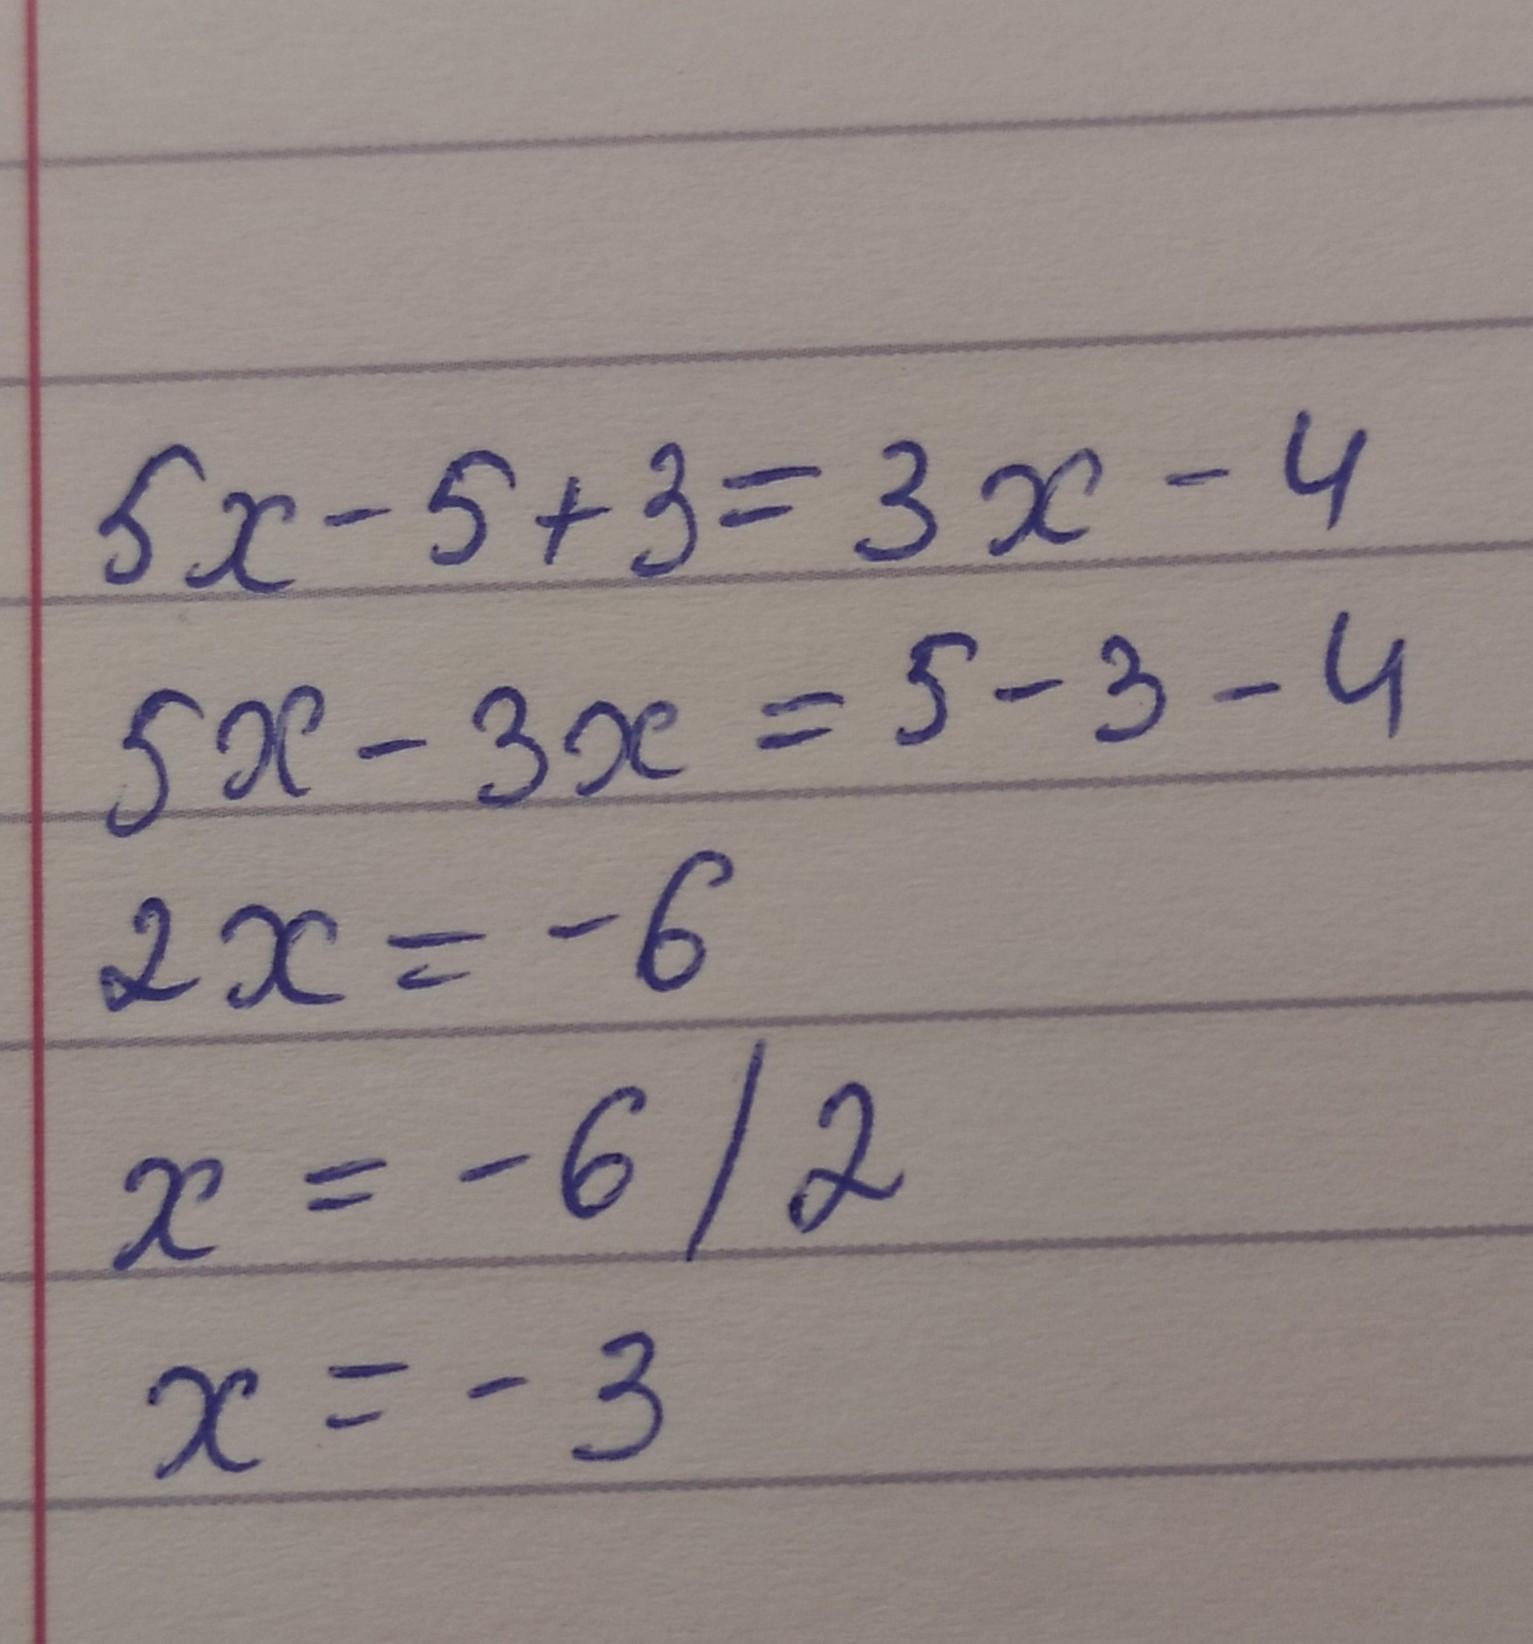 5x - 5 + 3 = 3x - 4
5x - 3x = 5 - 3 - 4
2x = -6
x = -6/2
x = -3